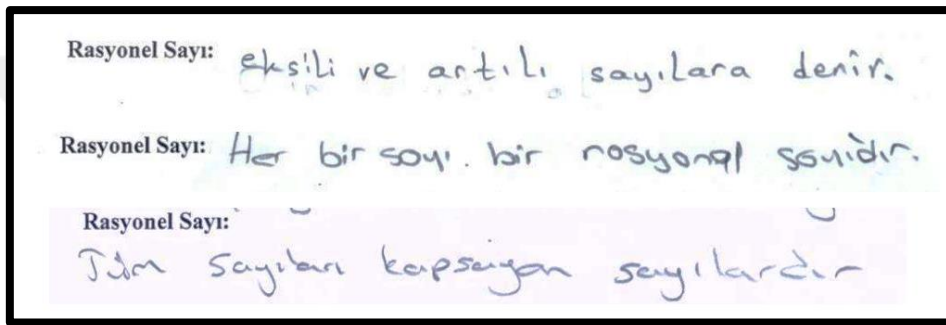 Rasyonel Sayı: eksili ve artılı sayılara denir.
Rasyonel Sayı: Her bir sayı bir rasyonel sayıdır.
Rasyonel Sayı:
Tüm sayıları kapsayan sayılardır